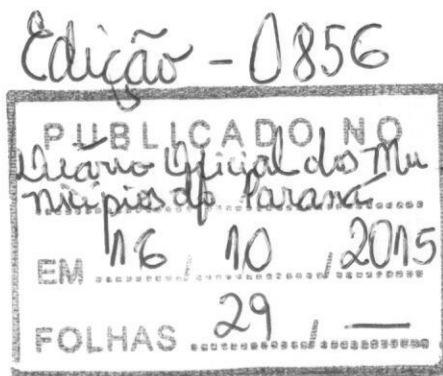 Edição - 0856
PUBLICADO NO
Diário Oficial dos Mu
nicípios do Paraná
EM 16 / 10 / 2015
FOLHAS 29 / —